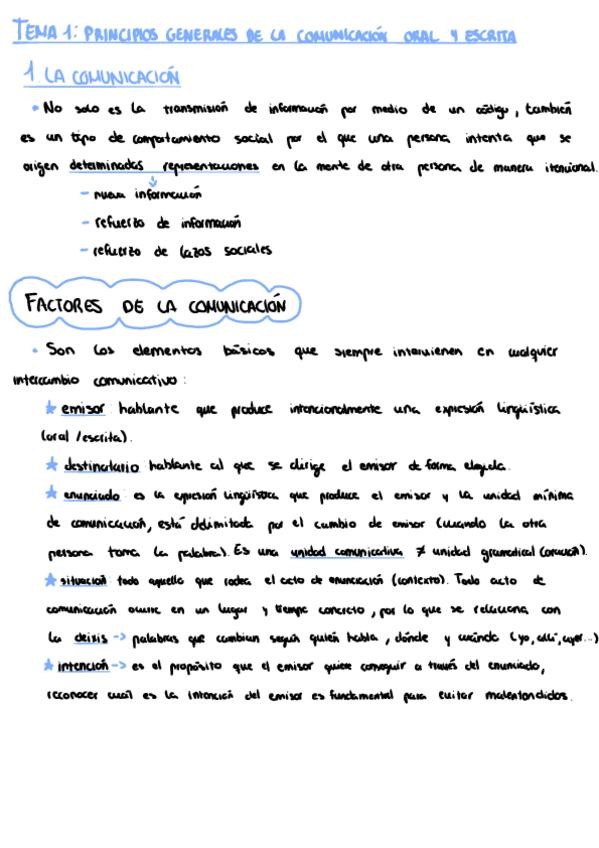 TEMA 1: PRINCIPIOS GENERALES DE LA COMUNICACIÓN ORAL Y ESCRITA
1. LA COMUNICACIÓN
• No solo es la transmisión de información por medio de un código, también
es un tipo de comportamiento social por el que una persona intenta que se
origen determinadas representaciones en la mente de otra persona de manera itenional.
- nueva información
- refuerzo de información
- refuerzo de lazos sociales
FACTORES DE LA COMUNICACIÓN
• Son los elementos básicos que siempre intervienen en cualquier
intercambio comunicativo:
★ emisor hablante que produce intencionalmente una expresión lingüística
(oral /escrita).
★ destinatario hablante al que se dirige el emisor de forma elegida.
★ enunciado es la expresión lingüística que produce el emisor y la unidad mínima
de comunicación, está delimitada por el cambio de emisor (cuando la otra
persona toma la palabra). Es una unidad comunicativa ≠ unidad gramatical (oración).
★ situación todo aquello que rodea el acto de enunciación (contexto). Todo acto de
comunicación ocurre en un lugar y tiempo concreto, por lo que se relaciona con
la deixis -> palabras que cambian según quién habla, dónde y cuándo (yo, allí, ayer...)
★ intención -> es el propósito que el emisor quiere conseguir a través del enunciado,
reconocer cuál es la intención del emisor es fundamental para evitar malentendidos.